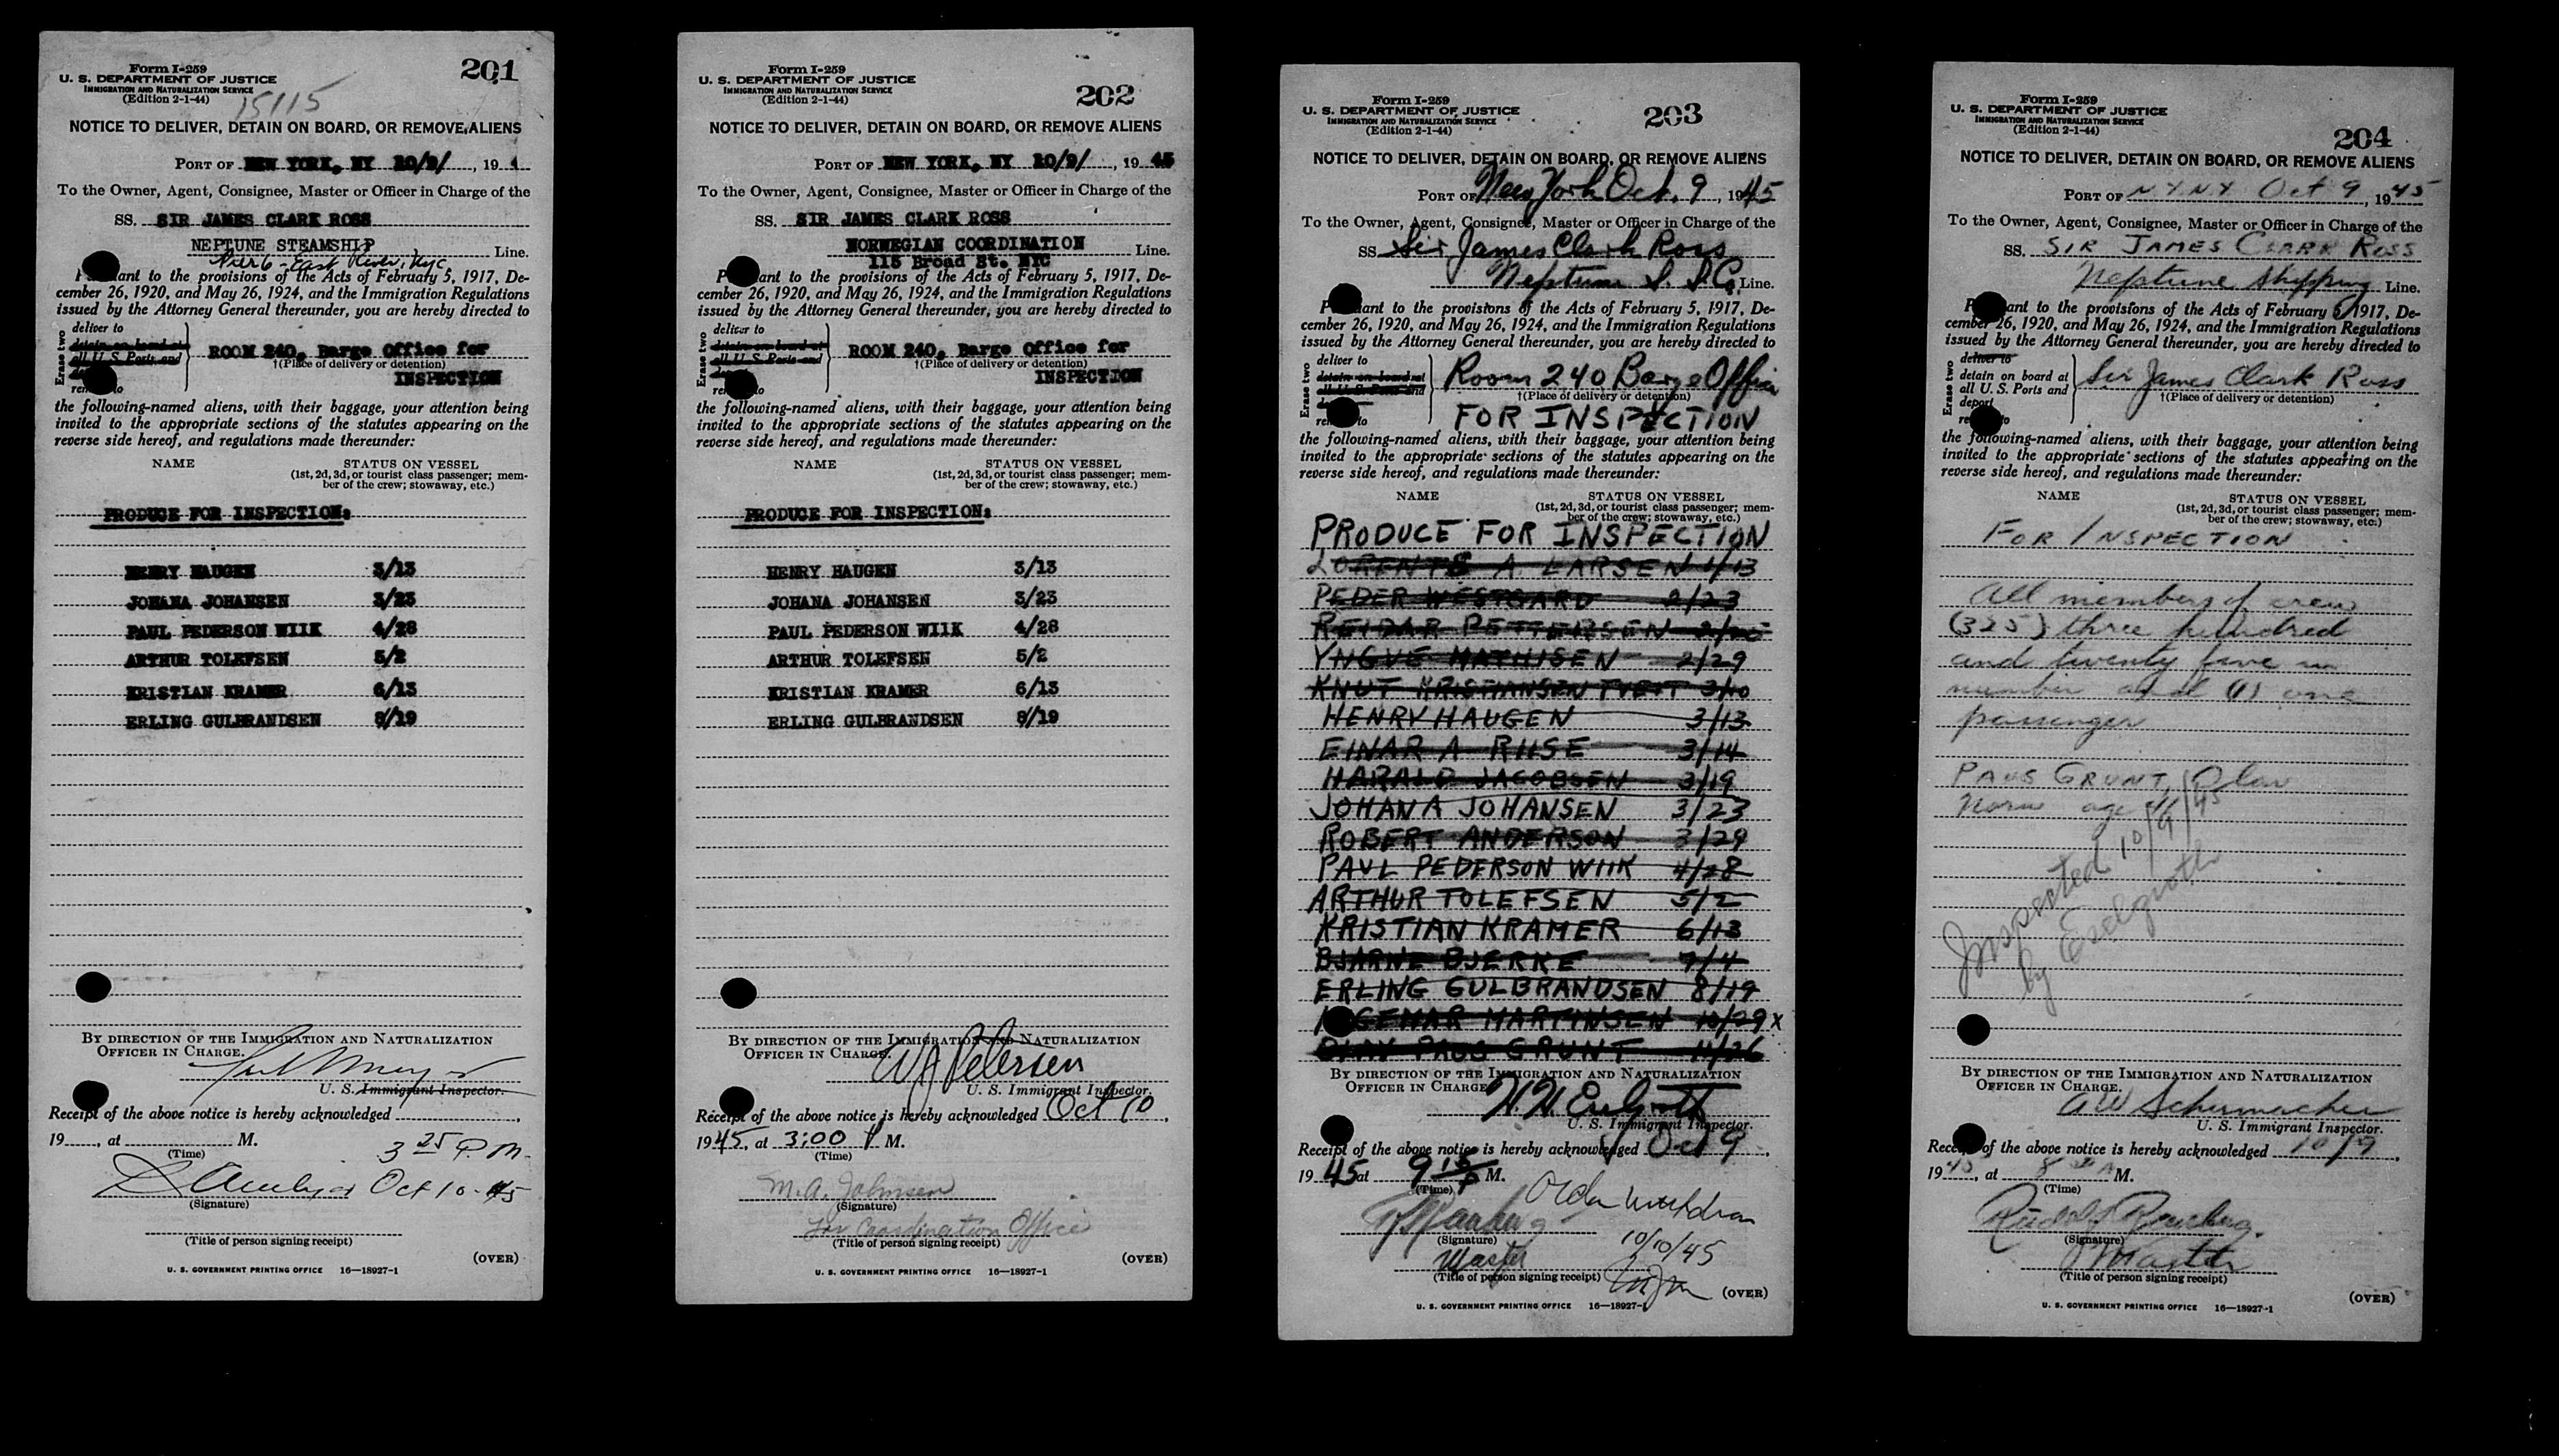 Form I-259
U. S. DEPARTMENT OF JUSTICE
IMMIGRATION AND NATURALIZATION SERVICE
(Edition 2-1-44)
201
15115
NOTICE TO DELIVER, DETAIN ON BOARD, OR REMOVE ALIENS
PORT OF NEW YORK, NY 10/9/, 19 4
To the Owner, Agent, Consignee, Master or Officer in Charge of the
SS. SIR JAMES CLARK ROSS
NEPTUNE STEAMSHIP Line.
Pier 6 - East River, NYC
ant to the provisions of the Acts of February 5, 1917, De-
cember 26, 1920, and May 26, 1924, and the Immigration Regulations
issued by the Attorney General thereunder, you are hereby directed to
Erase two
deliver to
detain on board at
all U. S. Ports and
ROOM 240, Barge Office for
†(Place of delivery or detention)
INSPECTION
the following-named aliens, with their baggage, your attention being
invited to the appropriate sections of the statutes appearing on the
reverse side hereof, and regulations made thereunder:
NAME STATUS ON VESSEL
(1st, 2d, 3d, or tourist class passenger; mem-
ber of the crew; stowaway, etc.)
PRODUCE FOR INSPECTION:
HENRY HAUGEN 3/13
JOHANA JOHANSEN 3/23
PAUL PEDERSON WIIK 4/28
ARTHUR TOLEFSEN 5/2
KRISTIAN KRAMER 6/13
ERLING GULBRANDSEN 8/19
BY DIRECTION OF THE IMMIGRATION AND NATURALIZATION
OFFICER IN CHARGE.
U. S. Immigrant Inspector.
Receipt of the above notice is hereby acknowledged
19, at M.
(Time)
3 25 P.M.
Oct 10-45
(Signature)
(Title of person signing receipt)
(OVER)
U. S. GOVERNMENT PRINTING OFFICE 16—18927-1
Form I-259
U. S. DEPARTMENT OF JUSTICE
IMMIGRATION AND NATURALIZATION SERVICE
(Edition 2-1-44)
202
NOTICE TO DELIVER, DETAIN ON BOARD, OR REMOVE ALIENS
PORT OF NEW YORK, NY 10/9/, 19 45
To the Owner, Agent, Consignee, Master or Officer in Charge of the
SS. SIR JAMES CLARK ROSS
NORWEGIAN COORDINATION Line.
115 Broad St. NYC
P ant to the provisions of the Acts of February 5, 1917, De-
cember 26, 1920, and May 26, 1924, and the Immigration Regulations
issued by the Attorney General thereunder, you are hereby directed to
Erase two
deliver to
detain on board at
all U. S. Ports and
ROOM 240, Barge Office for
†(Place of delivery or detention)
INSPECTION
the following-named aliens, with their baggage, your attention being
invited to the appropriate sections of the statutes appearing on the
reverse side hereof, and regulations made thereunder:
NAME STATUS ON VESSEL
(1st, 2d, 3d, or tourist class passenger; mem-
ber of the crew; stowaway, etc.)
PRODUCE FOR INSPECTION:
HENRY HAUGEN 3/13
JOHANA JOHANSEN 3/23
PAUL PEDERSON WIIK 4/28
ARTHUR TOLEFSEN 5/2
KRISTIAN KRAMER 6/13
ERLING GULBRANDSEN 8/19
BY DIRECTION OF THE IMMIGRATION AND NATURALIZATION
OFFICER IN CHARGE.
Petersen
U. S. Immigrant Inspector.
Receipt of the above notice is hereby acknowledged Oct 10,
1945, at 3:00 P M.
(Time)
M.A. Johnsen
(Signature)
for Coordination Office
(Title of person signing receipt)
(OVER)
U. S. GOVERNMENT PRINTING OFFICE 16—18927-1
Form I-259
U. S. DEPARTMENT OF JUSTICE
IMMIGRATION AND NATURALIZATION SERVICE
(Edition 2-1-44)
203
NOTICE TO DELIVER, DETAIN ON BOARD, OR REMOVE ALIENS
PORT OF New York Oct. 9, 1945
To the Owner, Agent, Consignee, Master or Officer in Charge of the
SS Sir James Clark Ross
Neptune S. S. Co. Line.
P ant to the provisions of the Acts of February 5, 1917, De-
cember 26, 1920, and May 26, 1924, and the Immigration Regulations
issued by the Attorney General thereunder, you are hereby directed to
Erase two
deliver to
detain on board at
all U. S. Ports and
Room 240 Barge Office
†(Place of delivery or detention)
FOR INSPECTION
the following-named aliens, with their baggage, your attention being
invited to the appropriate sections of the statutes appearing on the
reverse side hereof, and regulations made thereunder:
NAME STATUS ON VESSEL
(1st, 2d, 3d, or tourist class passenger; mem-
ber of the crew; stowaway, etc.)
PRODUCE FOR INSPECTION
LORENTS A. LARSEN 1/13
PEDER WESTGARD 2/23
REIDAR PETTERSEN
YNGVE MATHISEN 2/29
KNUT KRISTIANSEN TVEIT 3/10
HENRY HAUGEN 3/13
EINAR A RIISE 3/14
HARALD JACOBSEN 3/19
JOHANA JOHANSEN 3/23
ROBERT ANDERSON 3/29
PAUL PEDERSON WIIK 4/28
ARTHUR TOLEFSEN 5/2
KRISTIAN KRAMER 6/13
BJARNE BJERKE 7/4
ERLING GULBRANDSEN 8/19
GEMAR MARTINSEN 10/29 x
OLAV PAUS GRUNT 11/26
BY DIRECTION OF THE IMMIGRATION AND NATURALIZATION
OFFICER IN CHARGE
U. S. Immigrant Inspector.
Receipt of the above notice is hereby acknowledged Oct 9,
1945 at 9 15 P M.
(Time)
(Signature)
10/10/45
Master
(Title of person signing receipt)
(OVER)
U. S. GOVERNMENT PRINTING OFFICE 16—18927-
Form I-259
U. S. DEPARTMENT OF JUSTICE
IMMIGRATION AND NATURALIZATION SERVICE
(Edition 2-1-44)
204
NOTICE TO DELIVER, DETAIN ON BOARD, OR REMOVE ALIENS
PORT OF NYNY Oct 9, 1945
To the Owner, Agent, Consignee, Master or Officer in Charge of the
SS. SIR JAMES CLARK ROSS
Neptune Shipping Line.
P ant to the provisions of the Acts of February 5, 1917, De-
cember 26, 1920, and May 26, 1924, and the Immigration Regulations
issued by the Attorney General thereunder, you are hereby directed to
Erase two
deliver to
detain on board at
all U. S. Ports and
deport
Sir James Clark Ross
†(Place of delivery or detention)
the following-named aliens, with their baggage, your attention being
invited to the appropriate sections of the statutes appearing on the
reverse side hereof, and regulations made thereunder:
NAME STATUS ON VESSEL
(1st, 2d, 3d, or tourist class passenger; mem-
ber of the crew; stowaway, etc.)
FOR INSPECTION
All members of crew
(325) three hundred
and twenty five in
number and (1) one
passenger
PAUS GRUNT, Olav
Norw age
Inspected 10/9/45
by
BY DIRECTION OF THE IMMIGRATION AND NATURALIZATION
OFFICER IN CHARGE.
AW Schermacher
U. S. Immigrant Inspector.
Receipt of the above notice is hereby acknowledged 10/9
1945, at 8 A M.
(Time)
Rudolf
(Signature)
Master
(Title of person signing receipt)
(OVER)
U. S. GOVERNMENT PRINTING OFFICE 16—18927-1